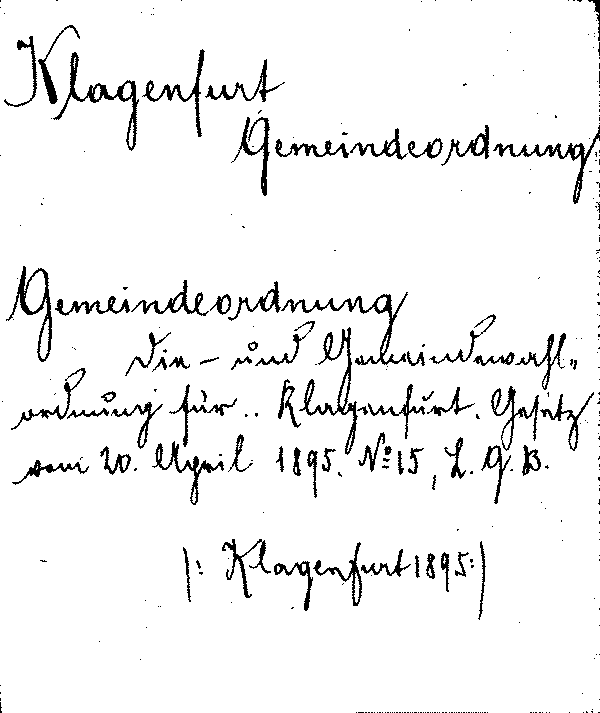 Klagenfurt
Gemeindeordnung
Gemeindeordnung
Die – und Gemeindewahl-
ordnung für .. Klagenfurt. Gesetz
vom 20. April 1895. No 15, L. G. B.
|: Klagenfurt 1895 :|